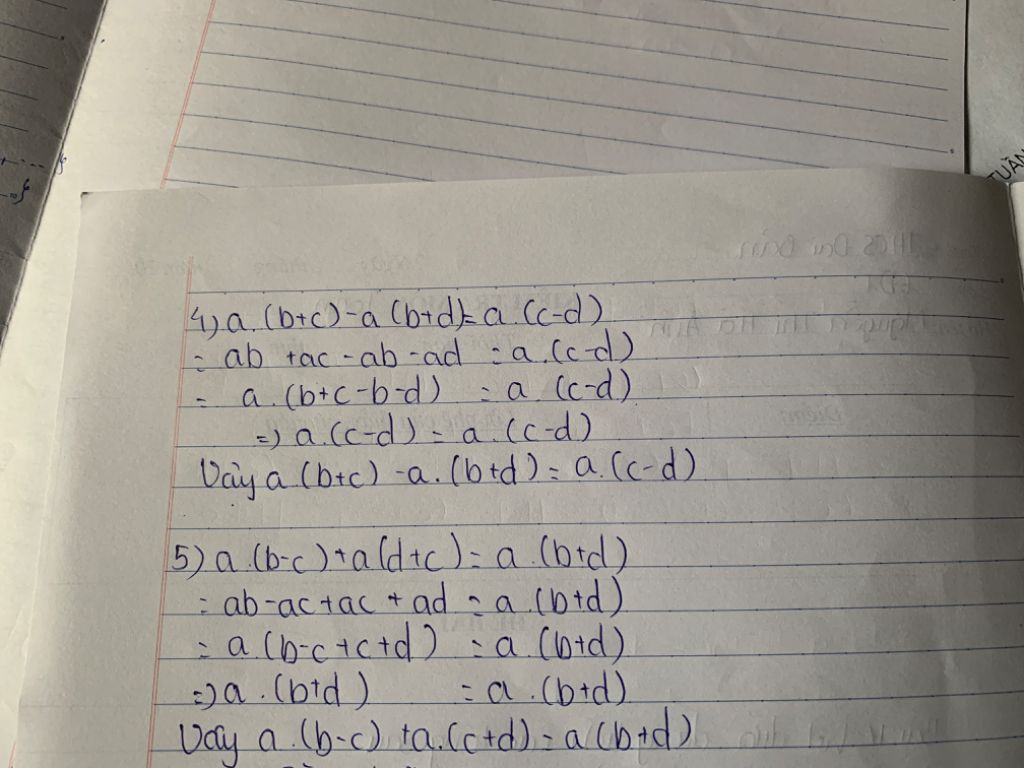 TUẦN
4) a.(b+c)-a(b+d)=a.(c-d)
= ab +ac -ab -ad = a.(c-d)
= a.(b+c-b-d) = a.(c-d)
=) a.(c-d) = a.(c-d)
Vậy a.(b+c) -a.(b+d) = a.(c-d)
5) a.(b-c)+a(d+c)= a.(b+d)
= ab-ac+ac + ad = a.(b+d)
= a.(b-c+c+d) = a.(b+d)
=) a.(b+d) = a.(b+d)
Vậy a.(b-c) +a.(c+d) = a(b+d)